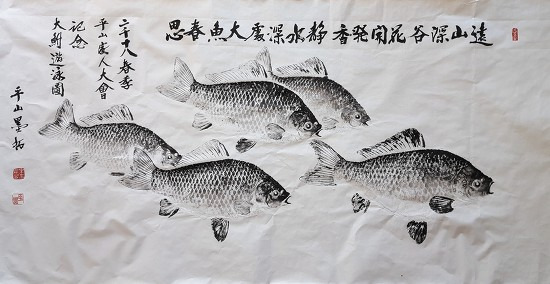 遠山深谷花開発香静水深處大魚春思
春季
平山人大會
記念
大鮒遊泳圖
平山墨拓